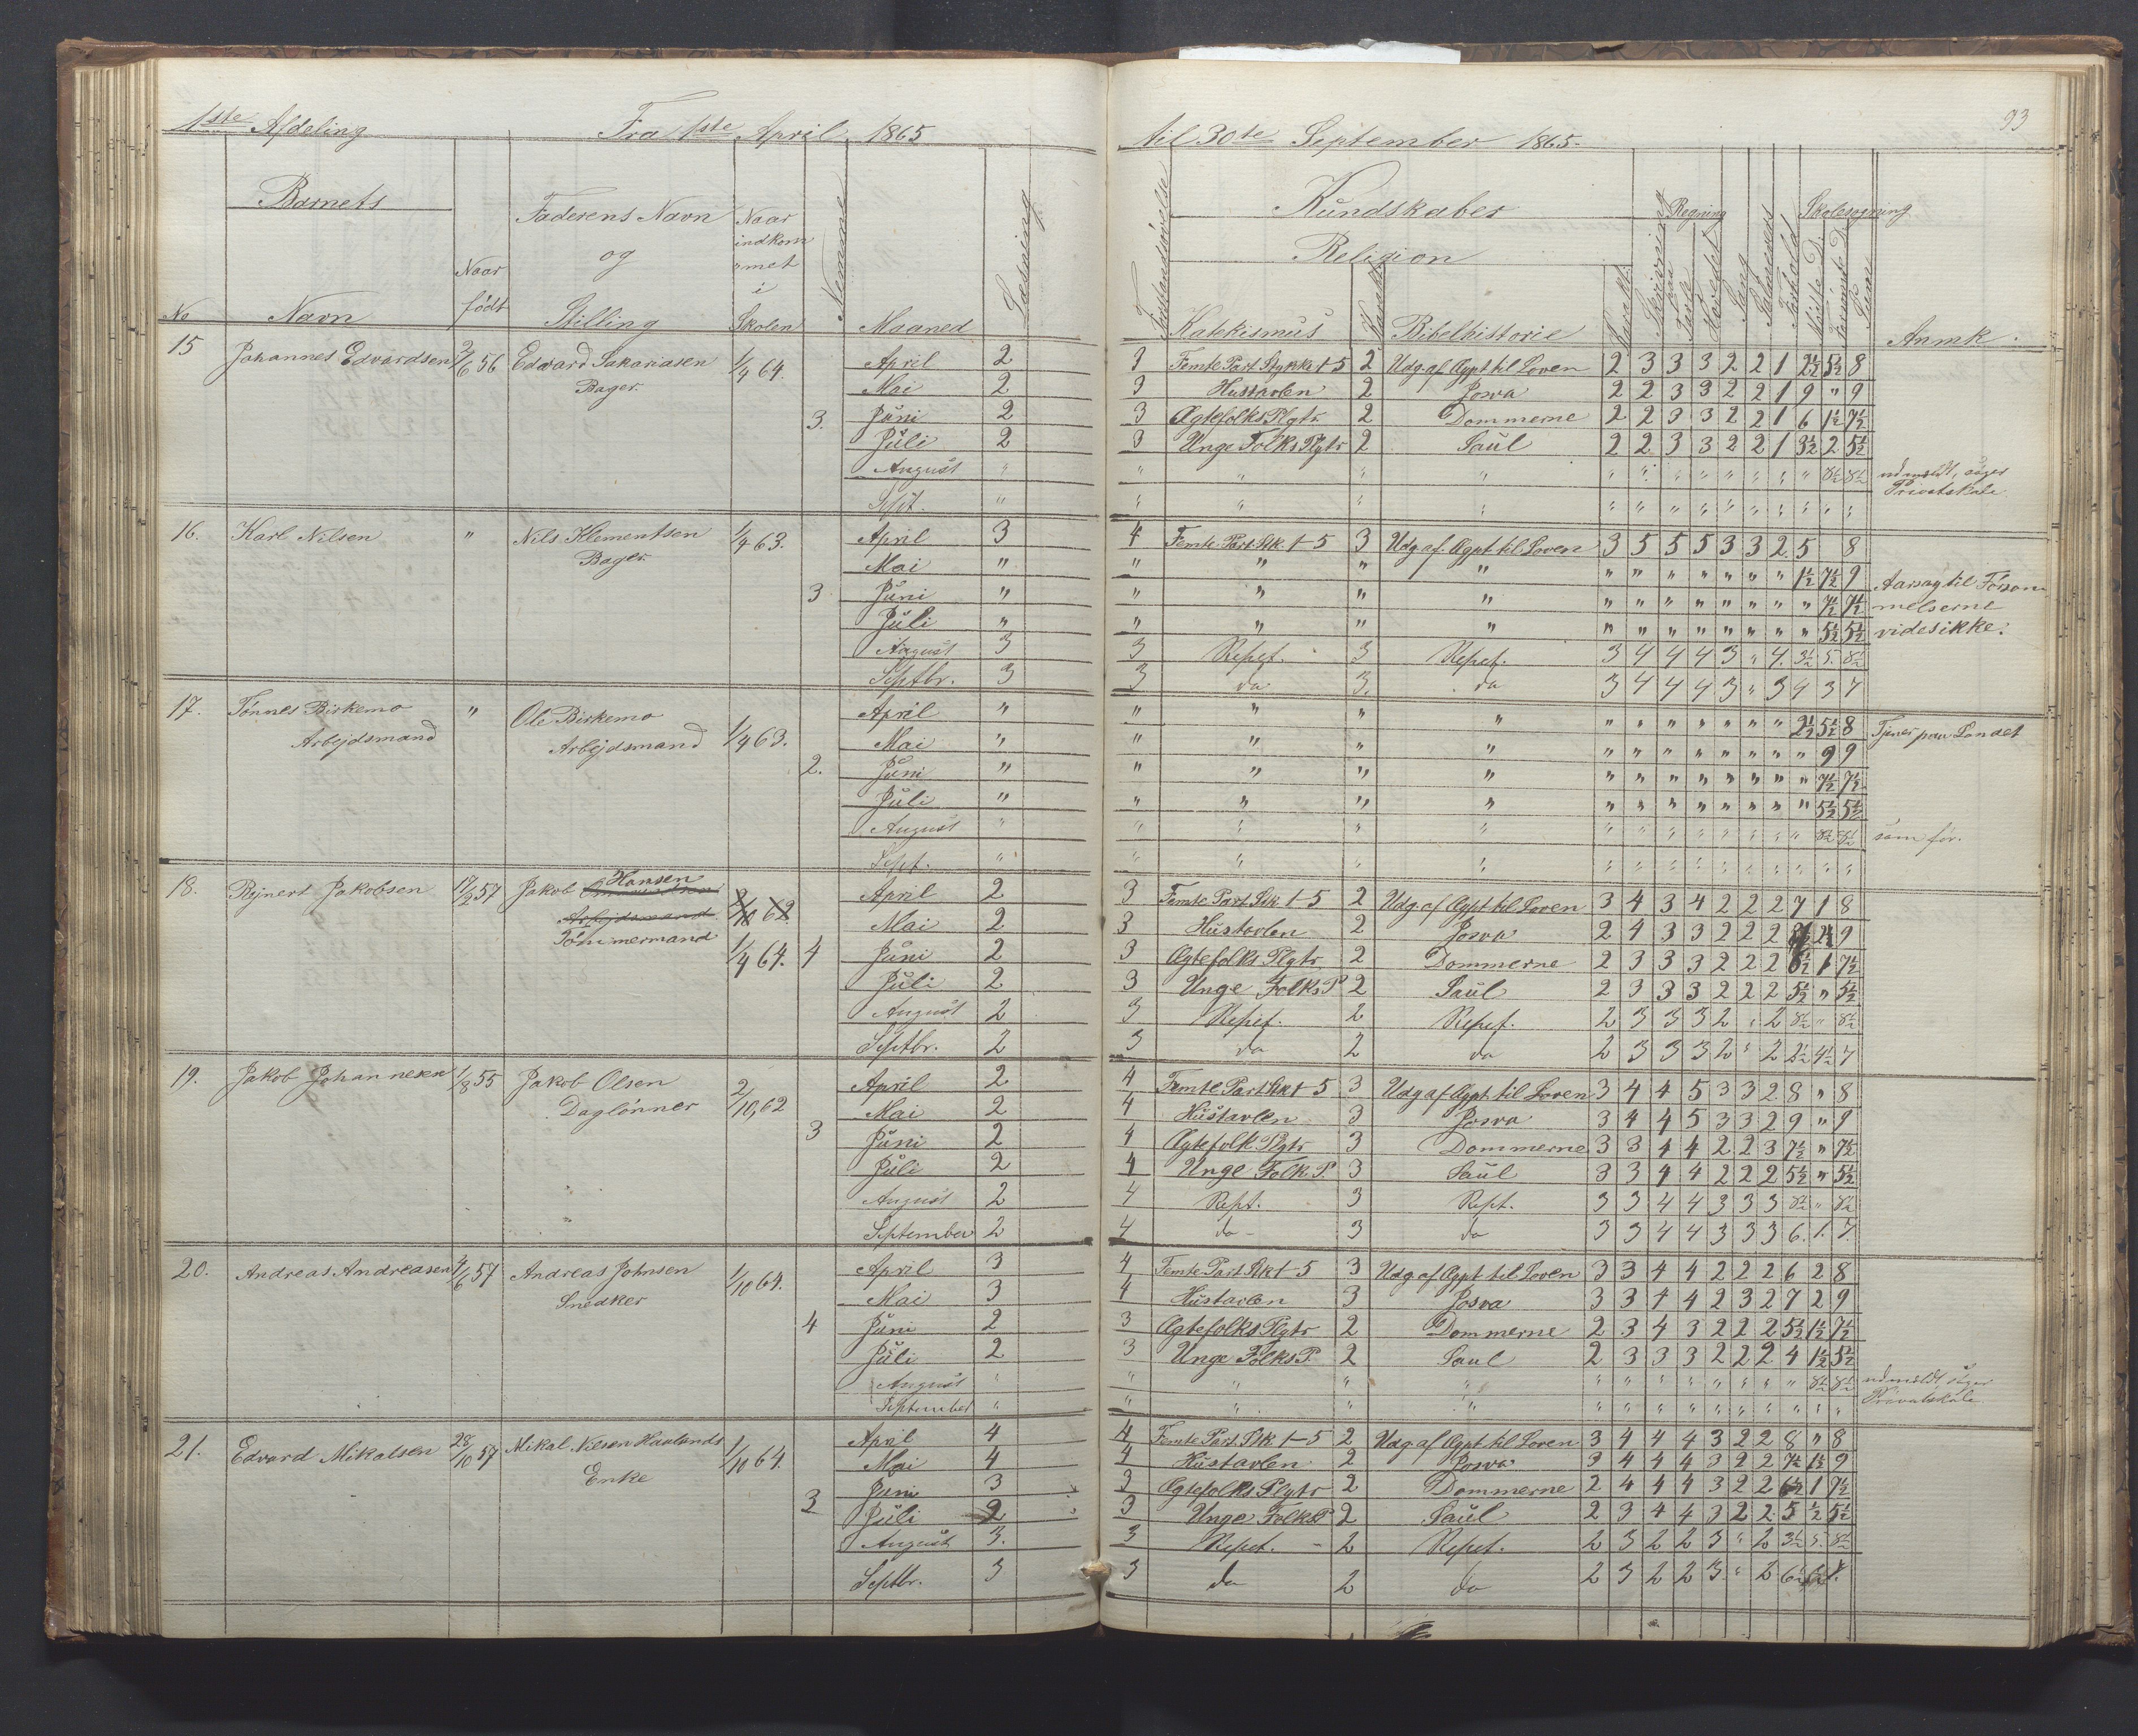 1ste Afdeling Fra 1ste April 1865 til 30te September 1865. 93
Barnets Kundskaber
Faderens Navn Naar Regning Skolesøgning
og indkom Religion
Naar met
i
No Navn født Stilling Skolen Nemme Maaned Læsning Forstandsøvelse Katekismus Karakt. Bibelhistorie Karakt. Skrivning Sang Forhold Anmk.
15 Johannes Edvardsen 2/6 56 Edvard Sakariasen 1/4 64. April 2 3 Femte Part Stykke 1-5 2 Udg. af Ægpt til Loven 2 3 3 3 2 2 1 2½ 5½ 8
Bager Mai 2 3 Hustavlen 2 Josva 2 2 3 3 2 2 1 9 " 9
3. Juni 2 3 Ægtefolks Plgtr 2 Dommerne 2 2 3 3 2 2 1 6 1½ 7½
Juli 2 3 Unge Folks Plgtr 2 Saul 2 2 3 3 2 2 1 3½ 2 5½
August " " " " " " " " " " " " " " 8½ 8½ udmeldt, søger
Sept. " " " " " " " " " " " " " " " " Privatskole
16. Karl Nilsen " Nils Klementsen 1/4 63. April 3 4 Femte Part Stk. 1-5 3 Udg. af. Ægpt til Loven 3 5 5 5 3 3 2 5 8
Bager. Mai " " " " " " " " " " " " 1½ 7½ 9 Aarsag til Forsøm
3 Juni " " " " " " " " " " " " " 7½ 7½ melserne
Juli " " " " " " " " " " " " " 5½ 5½ vides ikke.
August 3 3 Repet. 3 Repet. 3 4 4 4 3 " 4. 3½ 5. 8½
Septbr. 3 3 do 3. do 3 4 4 4 3 " 3 4 3 7
17. Tønnes Birkemo " Ole Birkemo 1/4 63. April " " " " " " " " " " " " 2½ 5½ 8 Tjener paa Landet
Arbejdsmand Arbejdsmand Mai " " " " " " " " " " " " " 9 9
2. Juni " " " " " " " " " " " " " 7½ 7½
Juli " " " " " " " " " " " " " 5½ 5½
August " " " " " " " " " " " " " 8½ 8½ som før.
Sept. " " " " " " " " " " " " " " "
18. Rejnert Jakobsen 17/2 57 Jakob Hansen April 2 3 Femte Part Stk. 1-5 2 Udg. af Ægpt til Loven 3 4 3 4 2 2 2 7 1 8
Arbejdsmand 62 Mai 2 3 Hustavlen 2 Josva 2 4 3 3 2 2 2 9
Tømmermand 1/4 64. 4 Juni 2 3 Ægtefolks Plgtr 2 Dommerne 2 3 3 3 2 2 2 6½ 1 7½
Juli 2 3 Unge Folks P 2 Saul 2 3 3 3 2 2 2 5½ " 5½
August 2 3 Repet. 2 Repet. 2 3 3 3 2 " 2 8½ " 8½
Septbr. 2 3 do 2 do 2 3 3 3 2 " 2 2½ 4½ 7
19. Jakob Johannesen 1/8 55 Jakob Olsen 2/10,62 April 2 4 Femte Part Stk 1-5 3 Udg af Ægpt til Loven 3 4 4 5 3 3 2 8 " 8
Daglønner Mai 2 4 Hustavlen 3 Josva 3 4 4 5 3 3 2 9 " 9
3 Juni 2 4 Ægtefolk Plgtr 3 Dommerne 3 3 4 4 2 2 3 7½ " 7½
Juli 2 4 Unge Folk P. 3 Saul 3 3 4 4 2 2 2 5½ " 5½
August 2 4 Rept. 3 Rept. 3 3 4 4 3 3 3 8½ " 8½
September 2 4 do - 3 do 3 3 4 4 3 3 3 6. 1. 7.
20. Andreas Andreasen 7/6 57 Andreas Johnsen 1/10 64. April 3 4 Femte Part Stk 1-5 3 Udg af Ægpt til Loven 3 3 4 4 2 2 2 6 2 8
Snedker Mai 3 4 Hustavlen 3 Josva 3 3 4 4 2 3 2 7 2 9
4 Juni 2 3 Ægtefolks Plgtr 2 Dommerne 2 3 4 3 2 2 2 5½ 1½ 7½
Juli 2 3 Unge Folks P. 2 Saul 2 3 3 3 2 2 2 4 1½ 5½
August " " " " " " " " " " " " " 8½ 8½ udmeldt, søger
September " " " " " " " " " " " " " " " Privatskole.
21. Edvard Mikalsen 28/10 57 Mikal Nilsen Haulands 1/10 64. April 4 4 Femte Part. Stk 1-5 2 Udg. af Ægpt til Loven 3 4 4 4 3 2 2 8 " 8
Enke Mai 4 4 Hustavlen 2 Josva 3 4 4 4 3 2 2 7½ 1½ 9
3 Juni 3 3 Ægtefolks Plgtr 2 Dommerne 2 4 4 4 3 2 2 6½ 1 7½
Juli 2 3 Unge Folks P 2 Saul 2 3 4 4 3 2 2 5 ½ 5½
August 3. 3 Repet. - 2 Repet. 2 3 2 2 3 " 2 3½ 5. 8½
Septbr. 3 3 do 2 do 2 3 2 2 3 " 2 6½